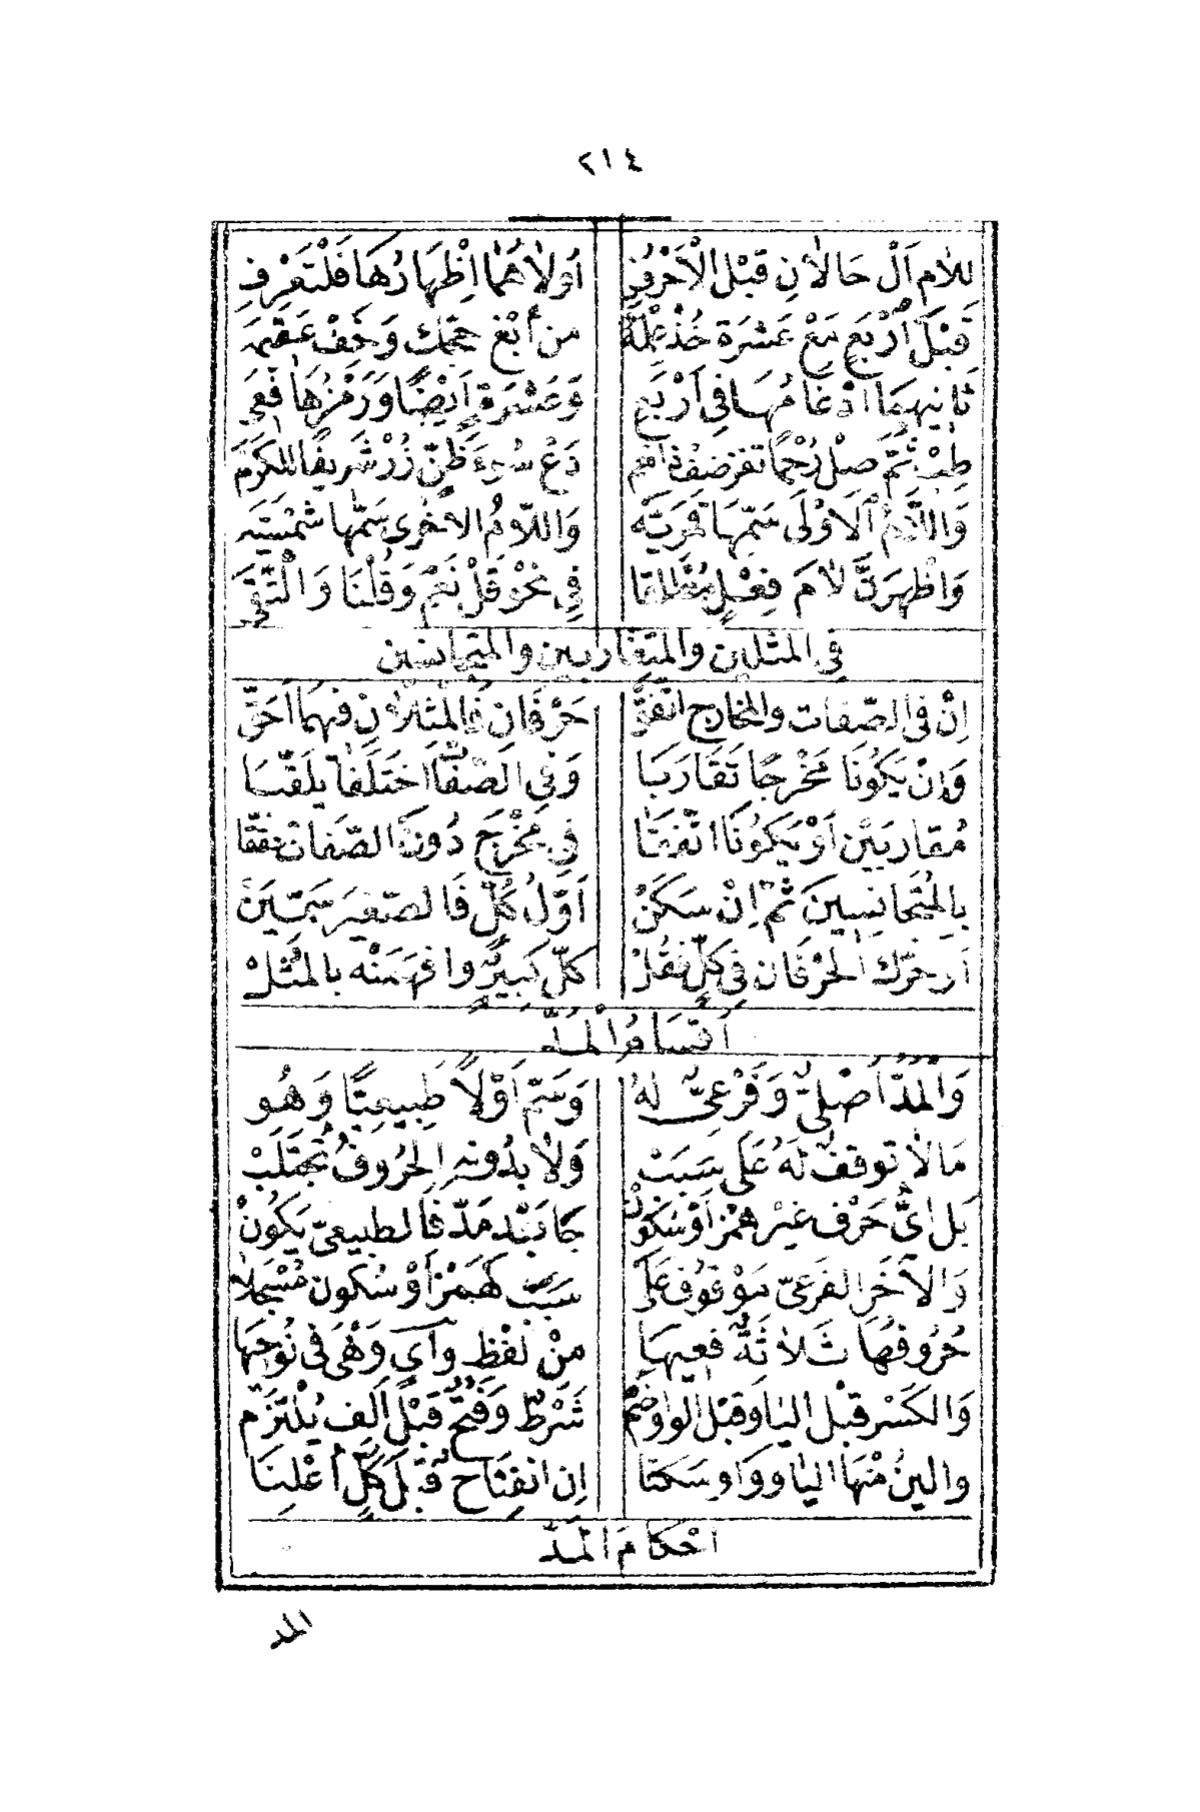 ٢١٤
للام اَلْ حَالانِ قَبْلَ الْاَحْرُفِ اُولاهُمَا اِظْهَارُهَا فَلْتَعْرِفِ
قَبْلَ اُرْبَعٍ مَعْ عَشْرَةٍ خُذْ عِلْمَهُ مِن أبْغِ حجّكَ وَخَفْ عَقِيمَهُ
ثانِيهِمَا ادْغَامُهَا فِى اَرْبَعِ وَعَشْرَةٍ اَيْضًا وَرَمْزَهَا فَعِى
طِبْ ثُمَّ صِلْ رُحْمًا تفز ضِفْ ذا نعم دَعْ سُوءَ ظَنٍّ زُرْ شَرِيفًا للكَرَمْ
وَاللَّامُ الاُوْلَى سَمِّهَا قَمَرِيَّه وَاللّامُ الاُخْرى سَمِّها شَمْسِيَّه
وَاَظْهِرَنَّ لامَ فِعْلٍ مُطْلَقا فِى نَحْوِ قُلْ نَعَمْ وَقُلْنَا وَالْتَقَى
فى المثلين والمتقاربين والمتجانسين
اِنْ فى الصّفات والمخارج اتّفَقْ حَرْفَانِ فَالمِثْلانِ فِيهِمَا اَحَقّ
وَاِنْ يَكُونَا مَخْرَجًا تَقَارَبَا وَفِى الصّفَاتِ اخْتَلَفَا يُلَقَّبَا
مُقارِبَيْنِ اَوْ يَكُونَا اتَّفَقَا فى مَخْرَجٍ دُونَ الصّفَات حُقِّقَا
بِالمُتَجَانِسَيْنِ ثُمّ اِنْ سَكَنْ اَوّلُ كُلٍّ فَالصّغِيرَ سَمِّيَنْ
اَو حُرّكَ الحَرْفَانِ فِى كلّ فَقُلْ كلّ كَبِيرٌ وافْهَمَنْهُ بالمُثُلْ
اَقْسَامُ الْمَدّ
وَالْمَدّ اَصْلِىٌّ وَفَرْعِىٌّ لَهُ وَسَمِّ اَوّلاً طَبِيعِيًّا وَهُو
مَا لا تَوَقّفٌ لَهُ عَلَى سَبَبْ وَلا بِدُونِهِ الحُرُوفُ تُجْتَلَبْ
بَل اىّ حَرْف غَيْر هَمْزٍ اَوْ سُكُونْ جَا بَعْدَ مَدّ فَالطَبِيعىّ يَكُونْ
وَالاخَرُ الفَرْعىّ مَوْقُوفٌ عَلَى سَبَبْ كَهَمْزٍ اَوْ سُكُون مُسْجَلا
حُرُوفُهَا ثَلاثَةٌ فَعِيهَا مِنْ لَفْظِ وَاىٍ وَهْىَ فى نُوحِيهَا
وَالكَسْر قَبْل اليا وقَبْل الواو ضَمّ شَرْطٌ وَفَتْحٌ قَبْلَ اَلِفٍ يُلْتَزَمْ
والّين مِنْهَا اليا وَوَاو سَكَنَا اِن انْفِتَاحٌ قَبْلَ كُلٍّ اُعْلِنَا
اَحْكَامُ الْمَدّ
المد